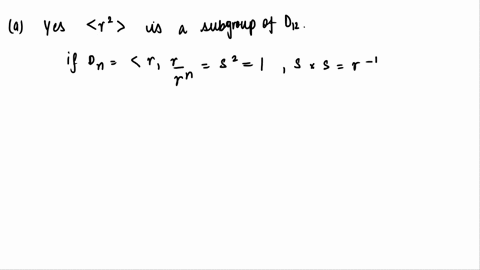 (a) Yes <r²> is a subgroup of D₁₂.
if Dₙ = < r, r/rⁿ = s² = 1 , s × s = r⁻¹